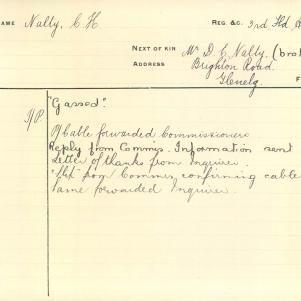 NAME Nalty, C H. REG. &C. 3rd Fld A
NEXT OF KIN Mr D. E. Nalty. (brot
ADDRESS Brighton Road.
Glenelg.
"Gassed".
Cable forwarded Commissioners
Reply from Commis. Information sent
Letter of thanks from Inquirer.
from Commis, confirming cable
same forwarded Inquirer.